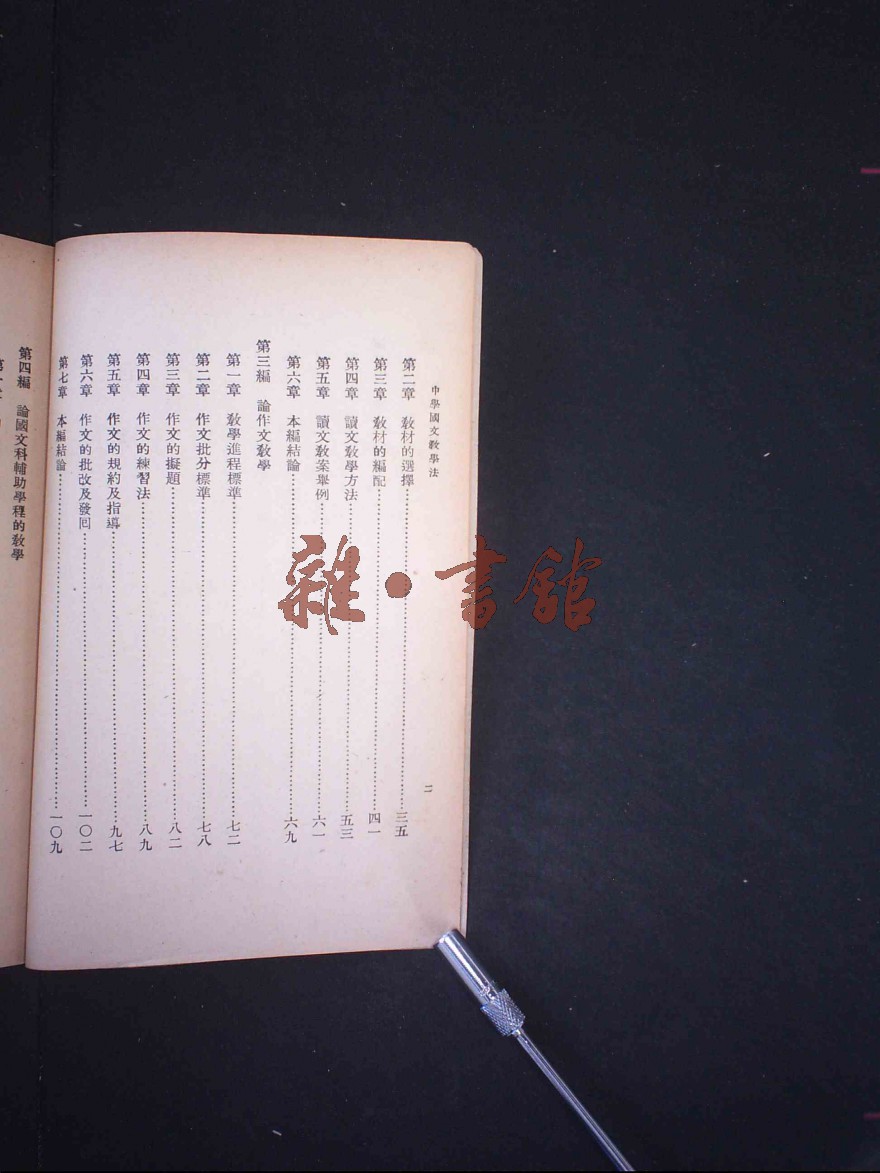 中學國文教學法
二
第二章 教材的選擇……三五
第三章 教材的編配……四一
第四章 讀文教學方法……五三
第五章 讀文教案舉例……六一
第六章 本編結論……六九
第三編 論作文教學
第一章 教學進程標準……七二
第二章 作文批分標準……七八
第三章 作文的擬題……八二
第四章 作文的練習法……八九
第五章 作文的規約及指導……九七
第六章 作文的批改及發回……一〇二
第七章 本編結論……一〇九
第四編 論國文科輔助學程的教學
雜·書館